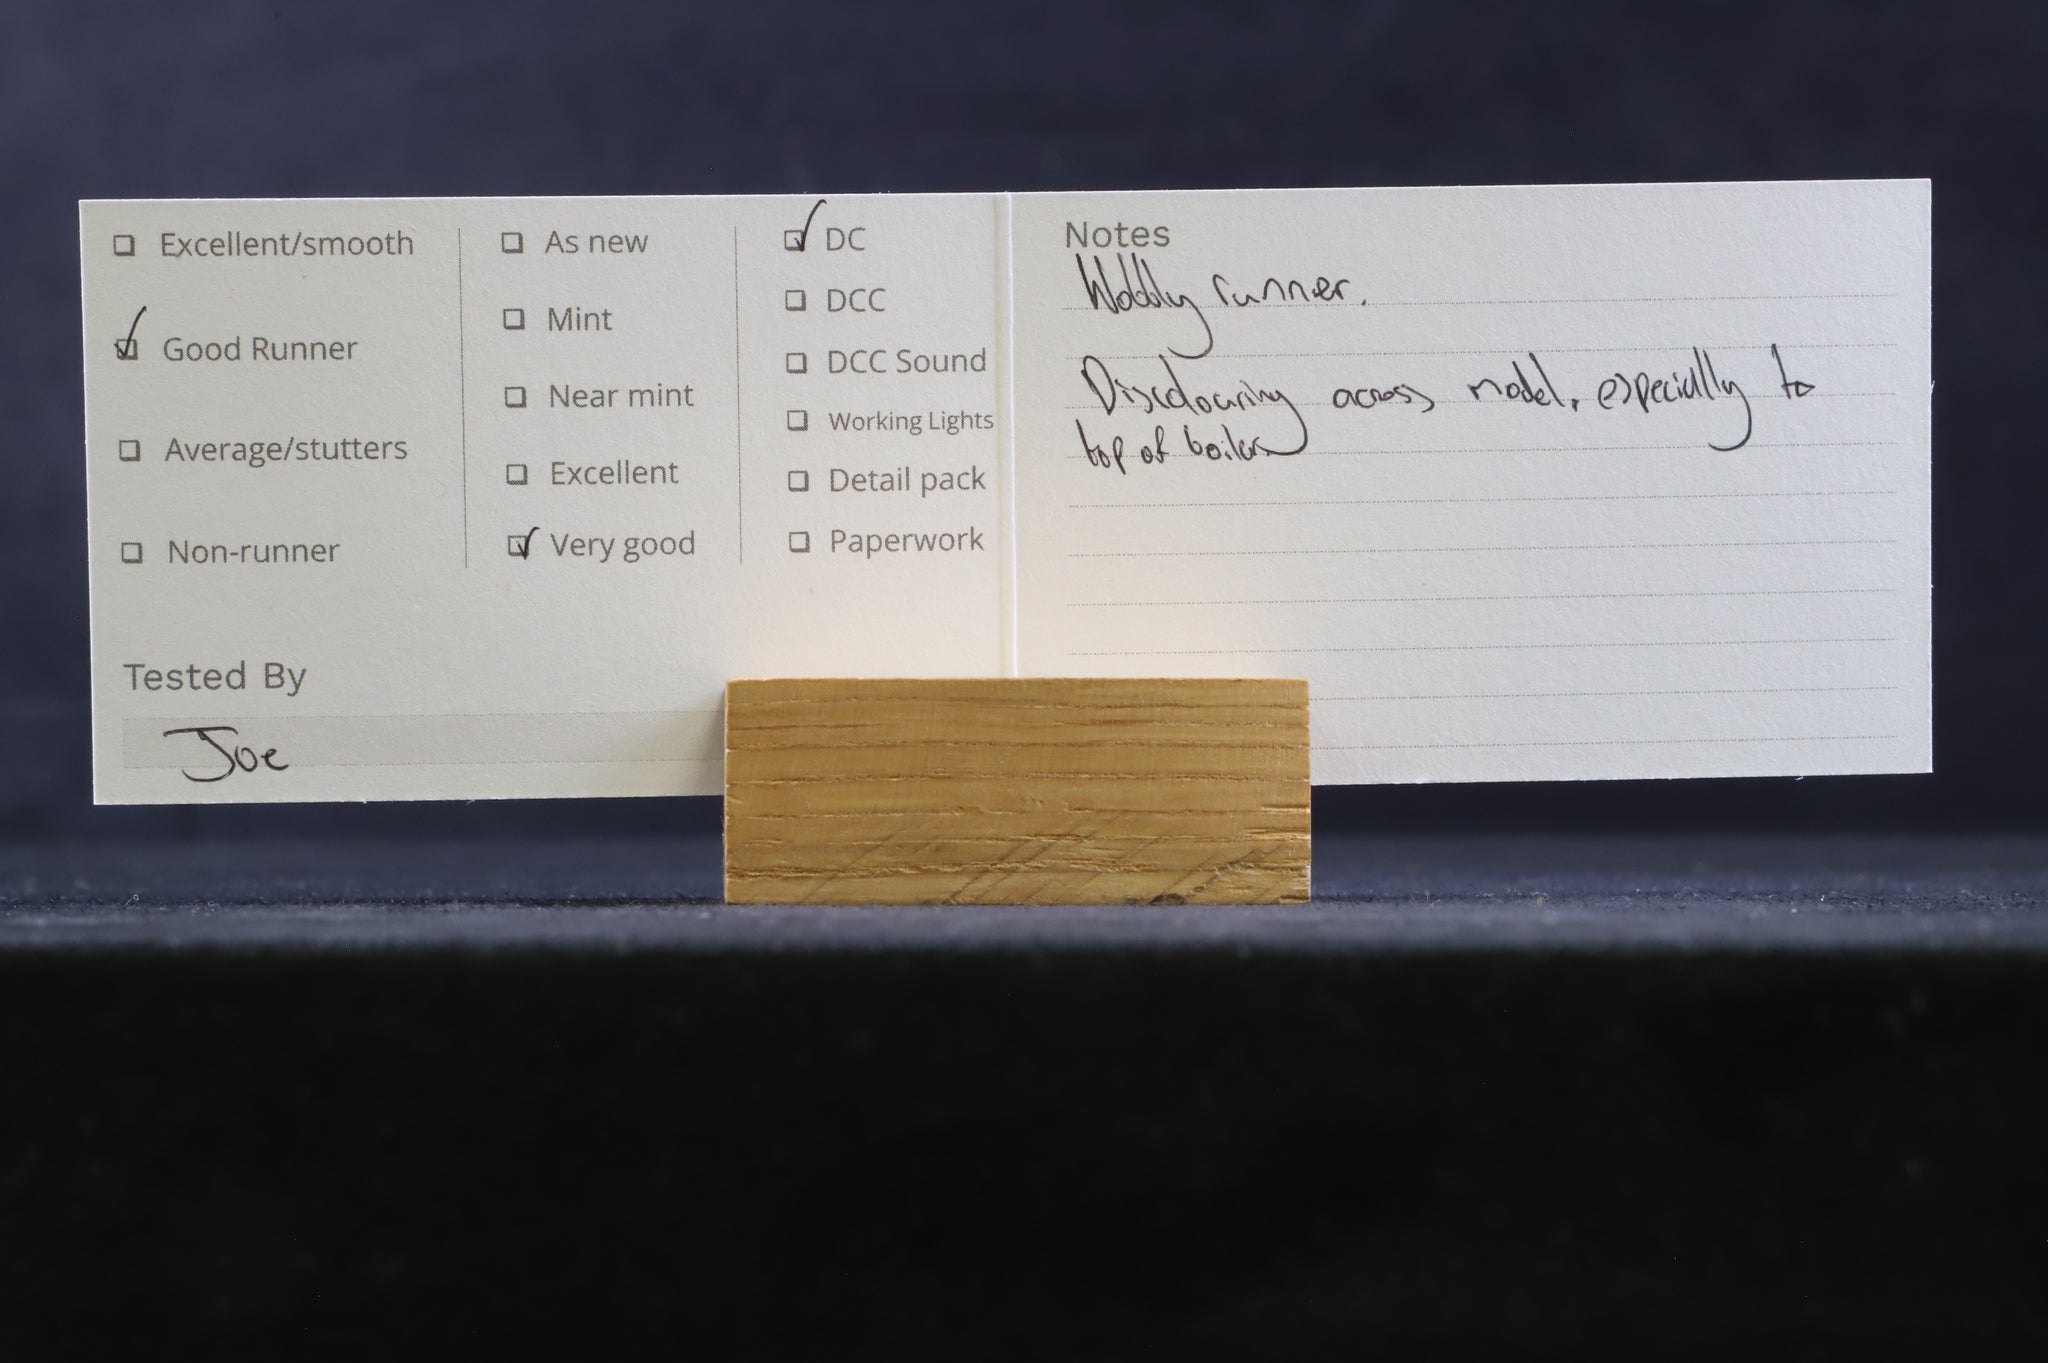 Excellent/smooth
Good Runner
Average/stutters
Non-runner
As new
Mint
Near mint
Excellent
Very good
DC
DCC
DCC Sound
Working Lights
Detail pack
Paperwork
Tested By
Joe
Notes
Wobbly runner.
Discolouring across model, especially to
top of boiler